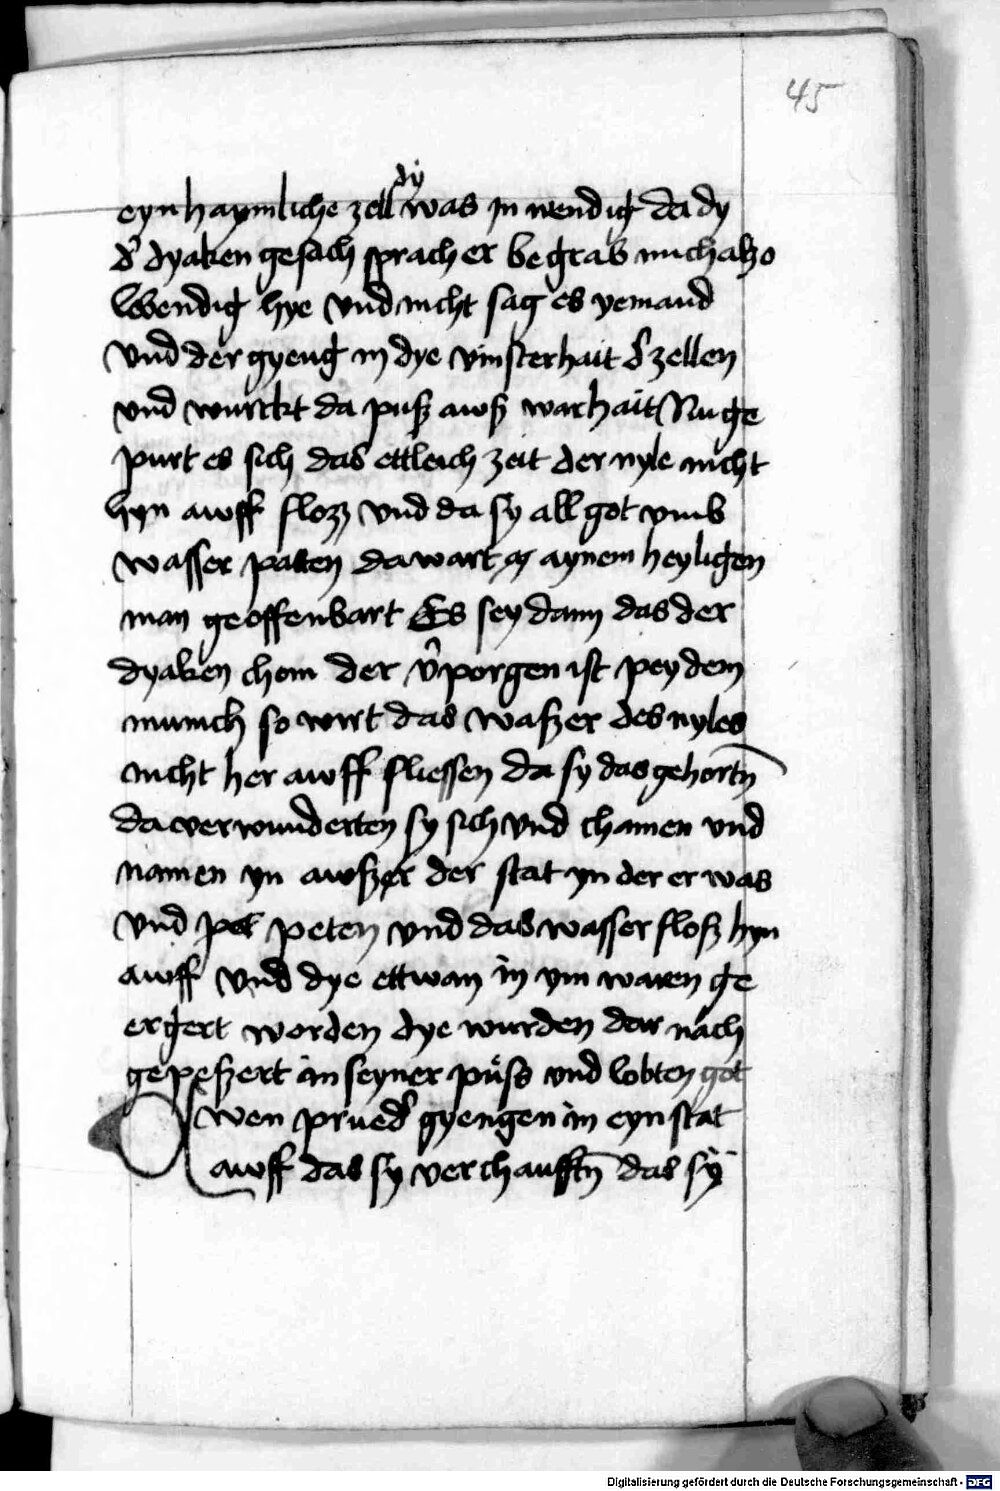 45
dy
eyn haymliche zell was in wendig da dy
d' dyaken gesach sprach er begrab mich alzo
lebendig hye vnd nicht sag es yemand
vnd der gyeng in dye vinsterhait d' zellen
vnd wurckt da puß awß warhait Nu ge
purt es sich das ettleich zeit der nyle nicht
hyn awff flozz vnd da sy all got vmb
wasser paten da wart aynem heyligen
man geoffenbart Es sey dann das der
dyaken chom der v'porgen ist pey dem
munich so wirt das waßer des nyles
nicht her awff fliessen da sy das gehortn̄
da verwunderten sy sich vnd chamen vnd
namen yn awßer der stat yn der er was
vnd peten vnd das wasser floß hyn
awff vnd dye ettwan in ym waren ge
ergert worden dye wurden dar nach
gepeßert in seyner puͤss vnd lobten got
Zwen prued' gyengen in eyn stat
awff das sy verchaufftn̄ das sy
Digitalisierung gefördert durch die Deutsche Forschungsgemeinschaft - DFG